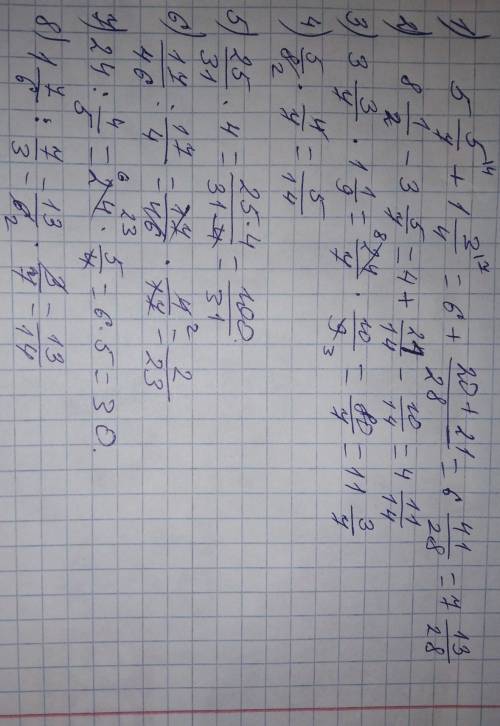 1) 5 5/7 \4 + 1 3/4 \7 = 6 + (20 + 21)/28 = 6 41/28 = 7 13/28
2) 8 1/2 - 3 5/7 = 4 + 21/14 - 10/14 = 4 11/14
3) 3 3/7 · 1 1/9 = 24/7 · 10/9 = 80/7 = 11 3/7
4) 5/8 · 4/7 = 5/14
5) 25/31 · 4 = 25·4/31 = 100/31
6) 17/46 : 17/4 = 17/46 · 4/17 = 2/23
7) 24 : 4/5 = 24 · 5/4 = 6·5 = 30.
8) 1 7/6 : 7/3 = 13/6 · 3/7 = 13/14